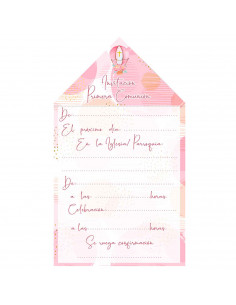 Invitación
Primera Comunión
De
El próximo día
En la Iglesia/Parroquia
De
a las horas
Celebración
a las horas
Se ruega confirmación